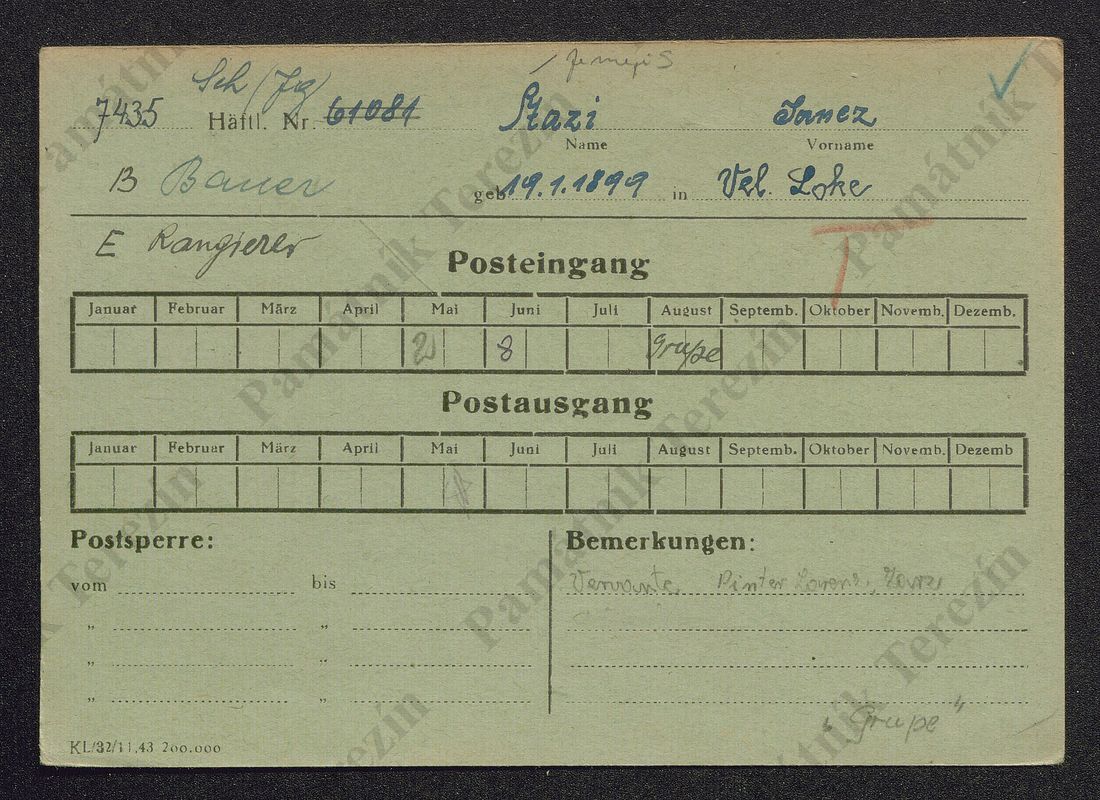 Sch (Jg)
7435 Häftl. Nr. 61081 Stazi Janez
Name Vorname
B Bauer geb. 19.1.1899 in Vel. Loke
E Rangierer
Posteingang
Januar Februar März April Mai Juni Juli August Septemb. Oktober Novemb. Dezemb.
2 8 Grupe
Postausgang
Januar Februar März April Mai Juni Juli August Septemb. Oktober Novemb. Dezemb
Postsperre: Bemerkungen:
vom bis Pinter
„ „
„ „
„ „
„Grupe"
KL/32/11.43 200.000
Památník Terezín